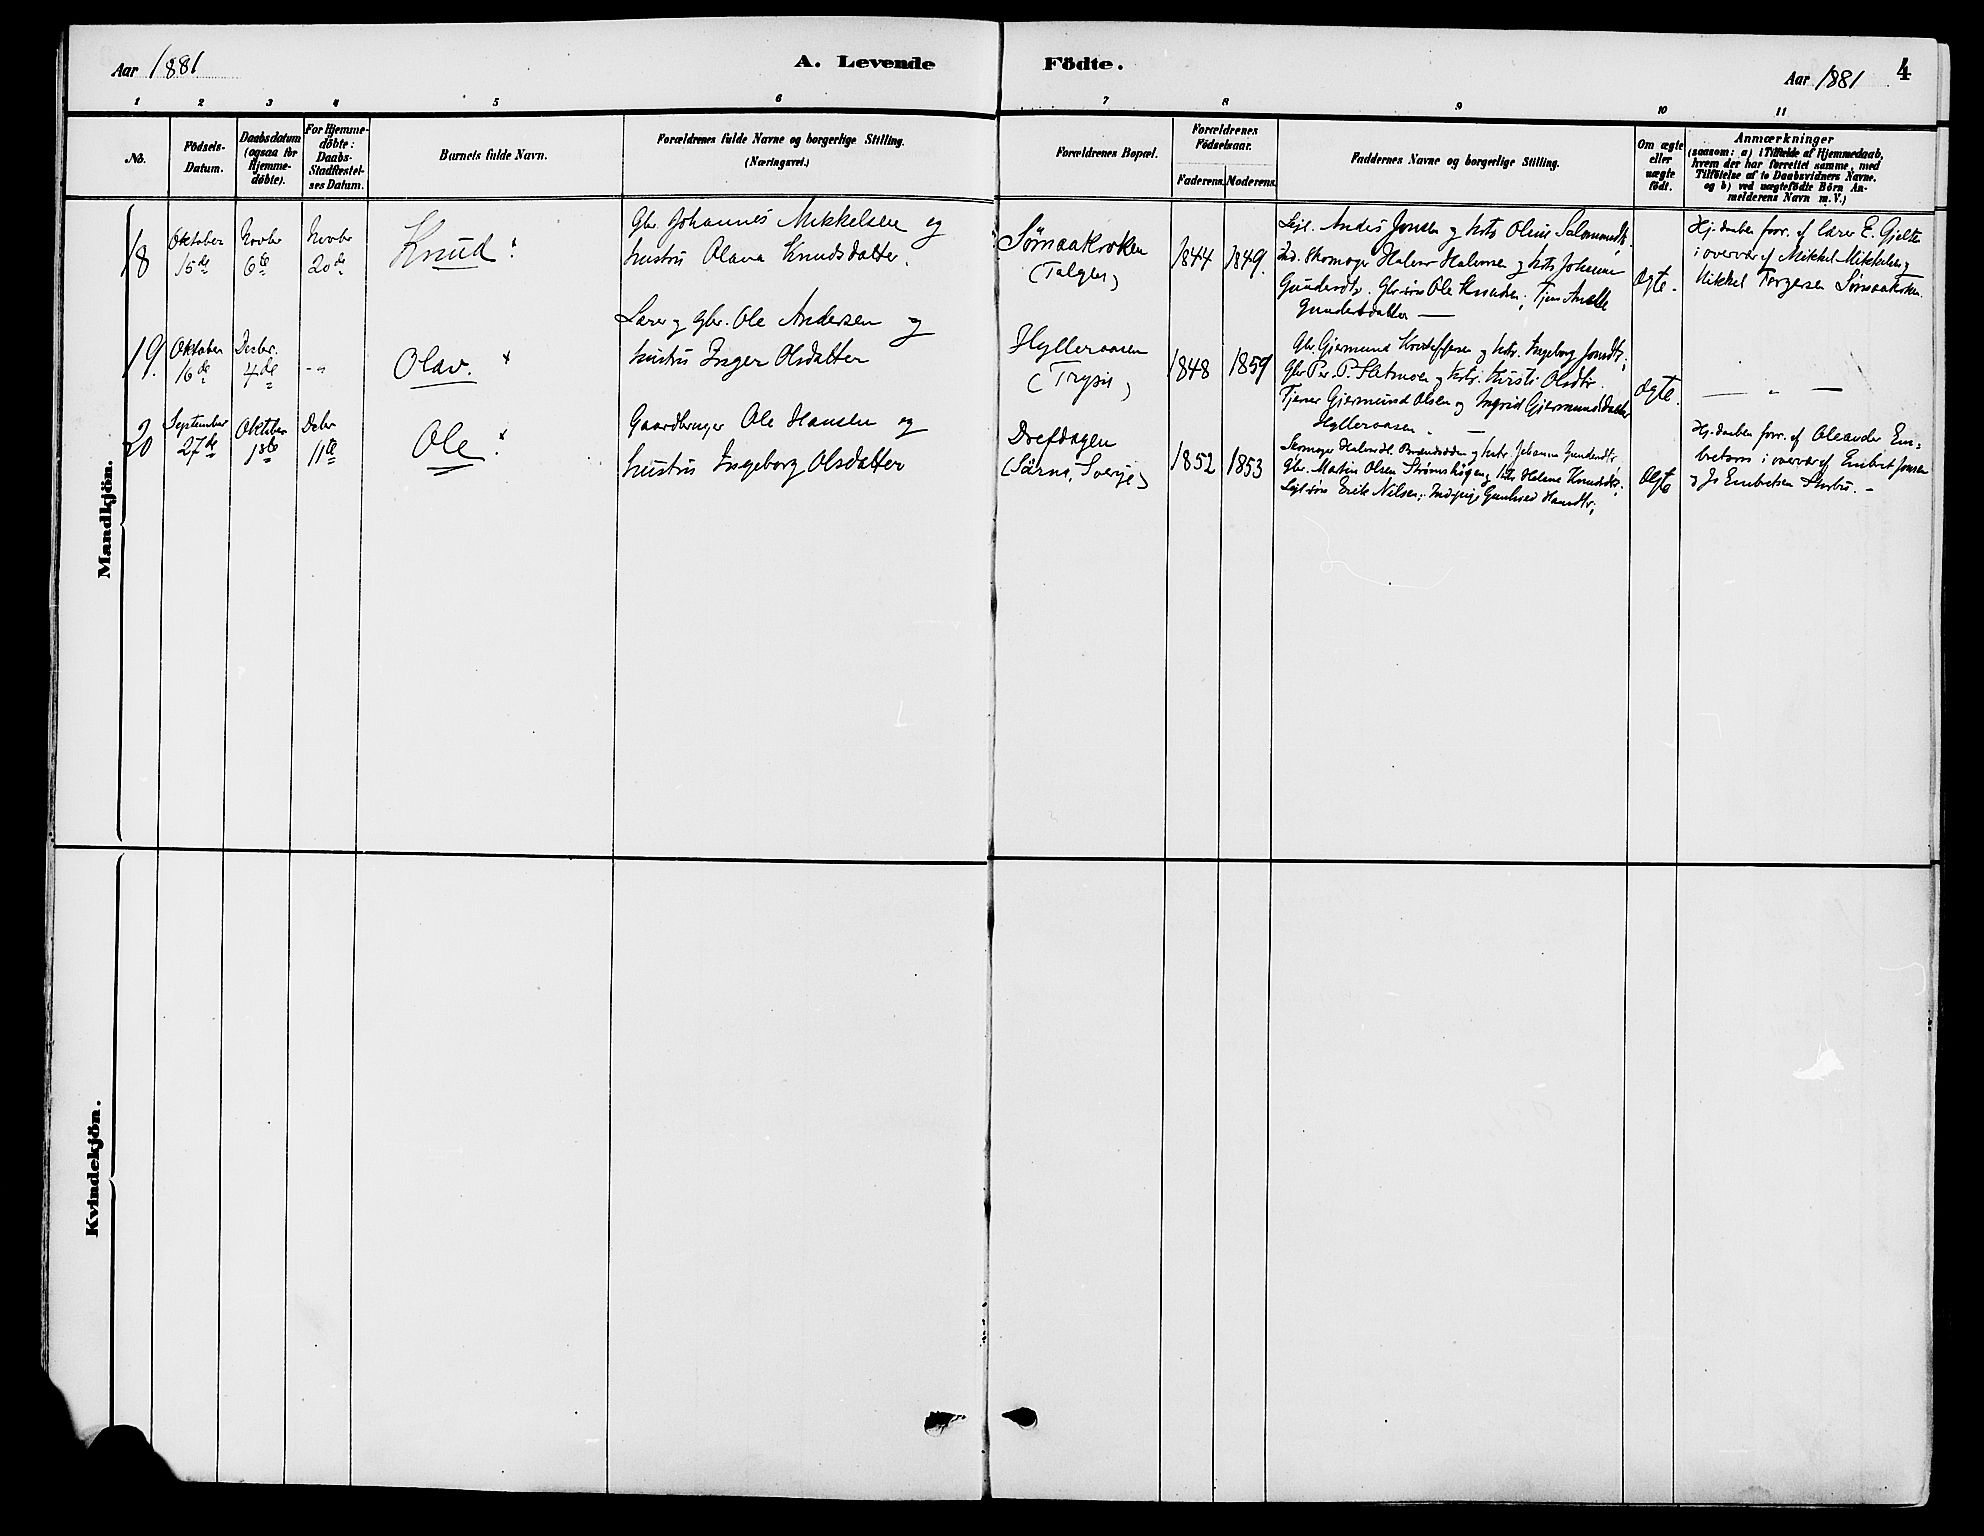 Aar 1881
A. Levende Födte.
Aar 1881
4
1 2 3 4 5 6 7 8 9 10 11
No.
Födsels-
Datum.
Daabsdatum
(ogsaa for
Hjemme-
döbte).
For Hjemme-
döbte:
Daabs-
Stadfæstel-
ses Datum.
Barnets fulde Navn.
Forældrenes fulde Navne og borgerlige Stilling.
(Næringsvei.)
Forældrenes Bopæl.
Forældrenes
Födselsaar.
Faderens. Moderens.
Faddernes Navne og borgerlige Stilling.
Om ægte
eller
uægte
födt.
Anmærkninger
(saasom: a) i Tilfælde af Hjemmedaab,
hvem der har forrettet samme, med
Tilföielse af to Daabsvidners Navne.
og b) ved uægtefödte Börn An-
melderens Navn m. V.)
Mandkjön.
18
Oktober
15de
Novbr
6te
Novbr
20de
Knud
Gbr. Johannes Mikkelsen og
hustru Olava Knudsdatter.
Sømaakroken
(Tolgen)
1844
1849.
Anders Jonsen og Oline
Skomager Halvor Halvorsen og Johanne
Gbr. søn Ole Knudsen; Tjen
Gundersdatter
Ægte.
Hj.daaben forr. af Lærer E. Gjelten
i overvær af Mikkel Mikkelsen og
Mikkel Torgersen Sømaakroken.
19.
Oktober
16de
Decbr.
4de
- "
Olav.
Lærer og gbr. Ole Andersen og
hustru Inger Olsdatter
Hylleraasen
(Trysil)
1848
1859
Gbr. Gjermund og Ingeborg Jonsdtr;
Gbr Per P. Sætmoen og Kirsti Olsdtr.
Tjener Gjermund Olsen og Ingrid Gjermundsdatter
Hylleraasen.
Ægte.
— " —
20
September
27de
Oktober
1ste
Decbr
11te
Ole
Gaardbruger Ole Hansen og
hustru Ingeborg Olsdatter
Drefdagen
(Särna, Sverige)
1852
1853
Skomager og Johanne Gundersdtr
Gbr. Martin Olsen og Helene Knudsdtr;
Erik Nilsen;
Ægte
Hj.daaben forr. af Oleander Em-
bretsen i overvær af Embret Jonsen
og Jo Embretsen
Kvindekjön.